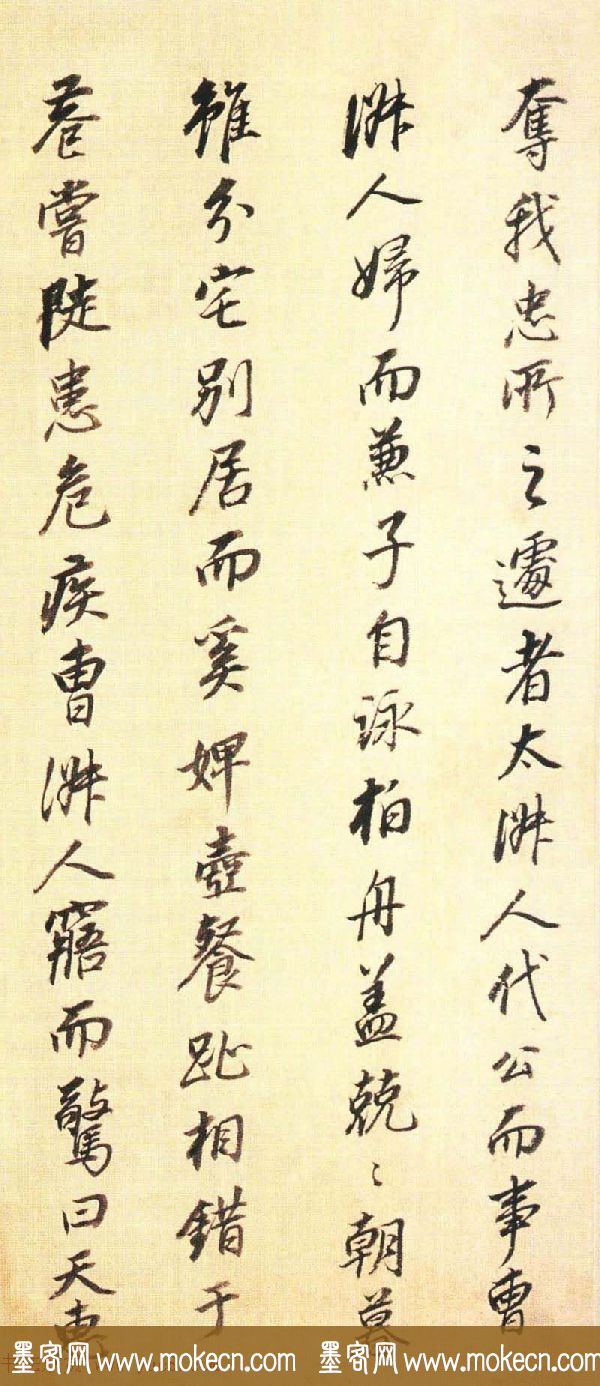 奪我忠所之遽者太淑人代公而事曹
淑人婦而兼子自詠柏舟盖兢〻朝暮
雖分宅別居而奚婢壺餐趾相錯于
巷嘗陡患危疾曹淑人寤而驚曰天
墨客网 www.mokecn.com 墨客网 www.mokecn.com